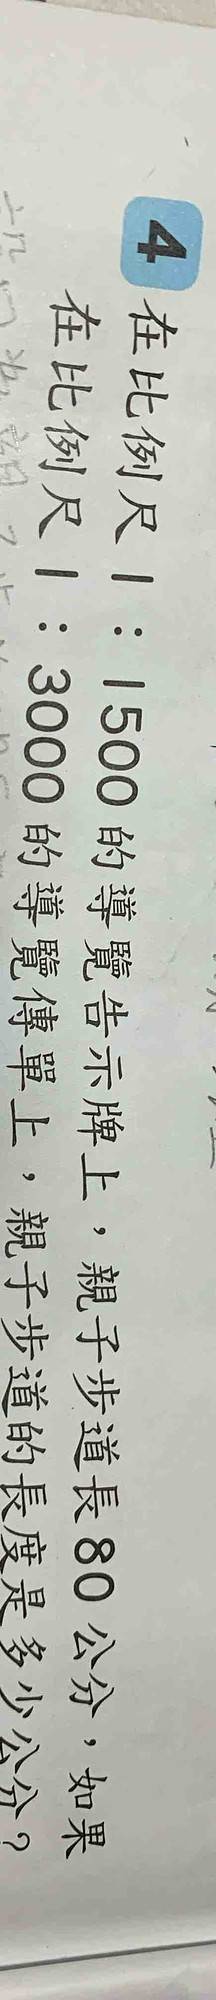 4 在比例尺 1：1500 的導覽告示牌上，親子步道長 80 公分，如果
在比例尺 1：3000 的導覽傳單上，親子步道的長度是多少公分？